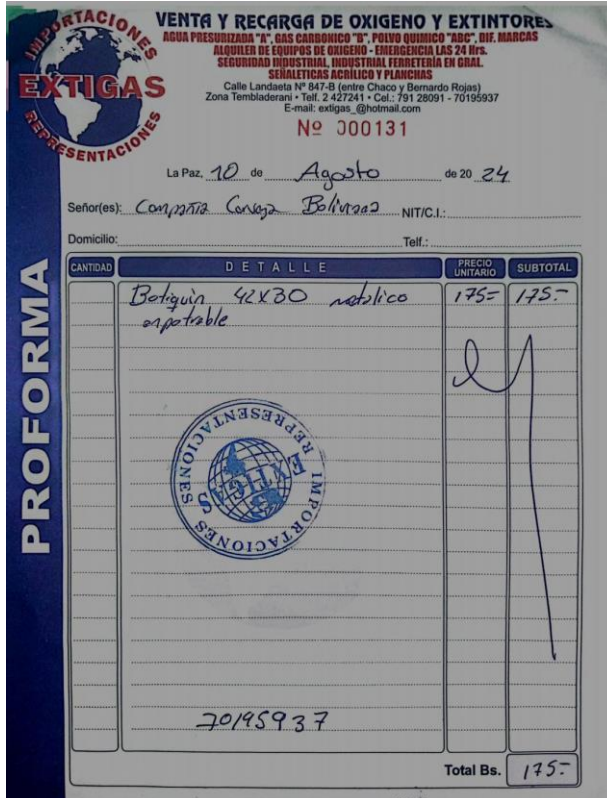 IMPORTACIONES
EXTIGAS
REPRESENTACIONES
VENTA Y RECARGA DE OXIGENO Y EXTINTORES
AGUA PRESURIZADA "A", GAS CARBONICO "B", POLVO QUIMICO "ABC", DIF. MARCAS
ALQUILER DE EQUIPOS DE OXIGENO - EMERGENCIA LAS 24 Hrs.
SEGURIDAD INDUSTRIAL, INDUSTRIAL FERRETERÍA EN GRAL.
SEÑALETICAS ACRÍLICO Y PLANCHAS
Calle Landaeta Nº 847-B (entre Chaco y Bernardo Rojas)
Zona Tembladerani • Telf. 2 427241 • Cel.: 791 28091 - 70195937
E-mail: extigas_@hotmail.com
Nº 000131
La Paz, 10 de Agosto de 20 24
Señor(es): Compañia Boliviana NIT/C.I.:
Domicilio: Telf.:
PROFORMA
CANTIDAD DETALLE PRECIO UNITARIO SUBTOTAL
Botiquin 42X30 metalico 175= 175.-
enpotrable
IMPORTACIONES REPRESENTACIONES
EXTIGAS
70195937
Total Bs. 175.-